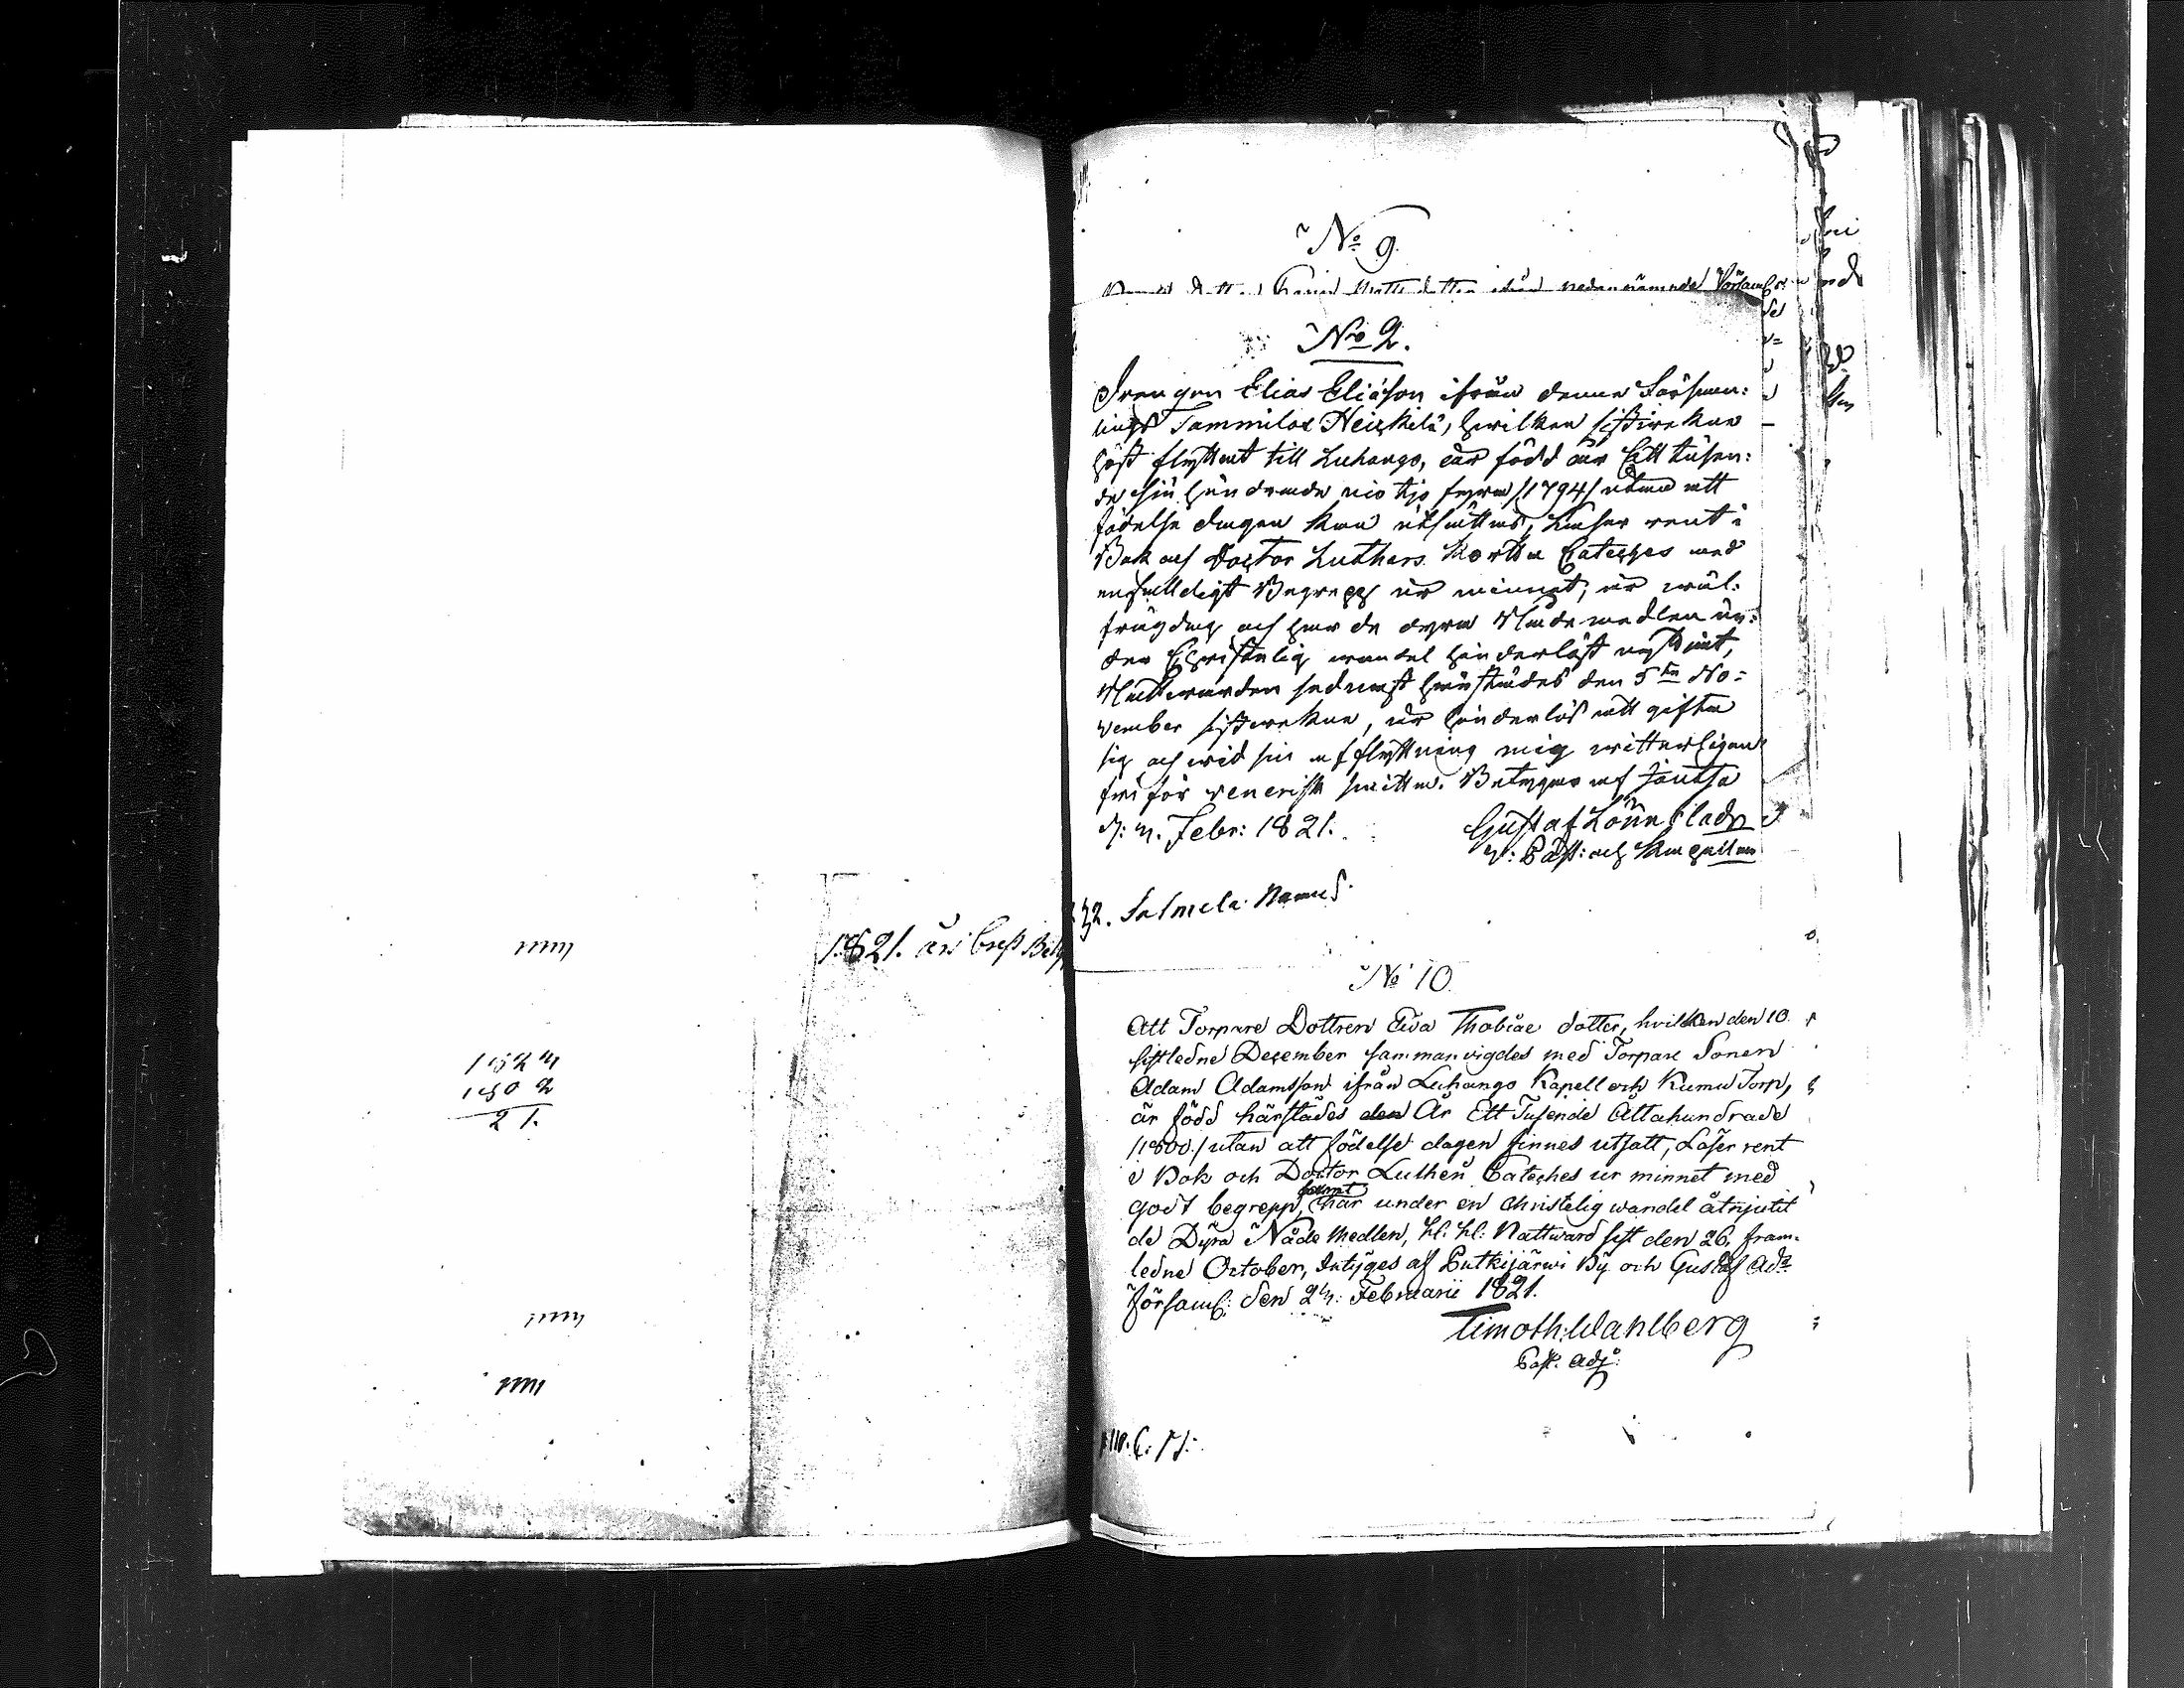 1821. års
1824
1802
21.
No 9.
dotter ifrån nedannämnde Församl:
No 2.
Drengen Elias Eliason ifrån denne Försam:
lings Tammilax Heickilä, hvilken sistvekne
höst flyttat till Luhango, är född år Ett tusen:
de sju hundrade nio tijo fyra /1794/ utan att
födelse dagen kan utsättas, läser rent i
Bok och Doctor Luthers Kortta Cateches med
enfalldigt Begrepp ur minnet; är wäl:
frägdag och har de dyra Nådemedlen un:
der Christelig wandel hinderlöst nyttjat,
Nattwarden sednast härstädes den 5te No:
vember sistvekne, är hinderlös att gifta
sig och wid sin afflyttning mig witterligen
fri för venerisk smitta. Betygas af Joutsa
d: 4. Febr: 1821.
Gustaf Lönnblad
V: Past: och Kapellan
Salmela Namus
No 10
Att Torpare Dottren Eva Thobiae dotter, hvilken den 10.
sistledne December sammanvigdes med Torpare Sonen
Adam Adamsson ifrån Luhango Kapell och Kumu Torp,
är född härstädes den År Ett Tusende Åttahundrade
/1800./ utan att födelse dagen finnes utsatt, Läser rent
i Bok och Doctor Luthers Cateches ur minnet med
godt begrepp, samt har under en Christelig wandel åtnjutit
de Dyra Nåde Medlen, H: H: Nattward sist den 26. fram-
ledne October, Intyges af Putkijärwi By och Gustaf Ad:
Församl: den 24: Februarii 1821.
Timoth: Wahlberg
Past. Adj: